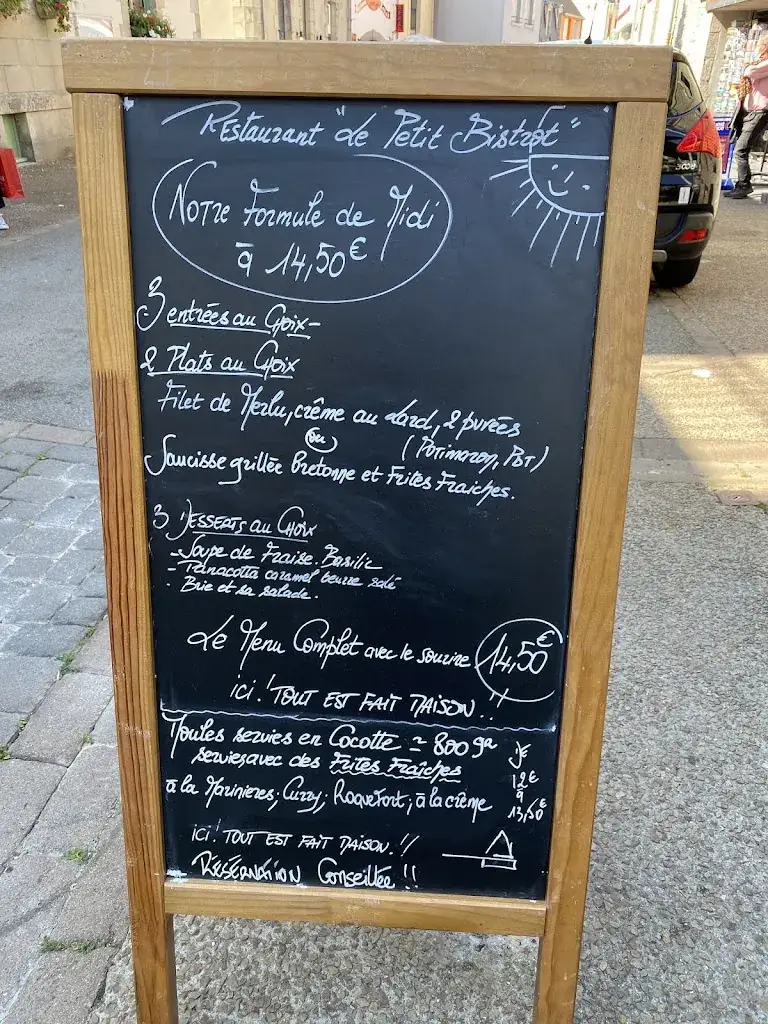 Restaurant "Le Petit Bistrot"
Notre Formule de Midi
à 14,50€
3 entrées au Choix-
2 Plats au Choix
Filet de Merlu, crême au Lard, 2 purées
(Potimaron, PDT)
ou
Saucisse grillée bretonne et Frites Fraiches.
3 Desserts au Choix
- Soupe de Fraise. Basilic
- Panacotta caramel beurre salé
- Brie et sa salade.
Le Menu Complet avec le sourire 14,50€
ici! TOUT EST FAIT MAISON!!
Moules servies en Cocotte ≃ 800 gr
servies avec des Frites Fraîches
12€
à la Marinieres, Curry, Roquefort, à la crème
à
13,50€
ici! TOUT EST FAIT MAISON!!
RÉSERVATION Conseillée!!